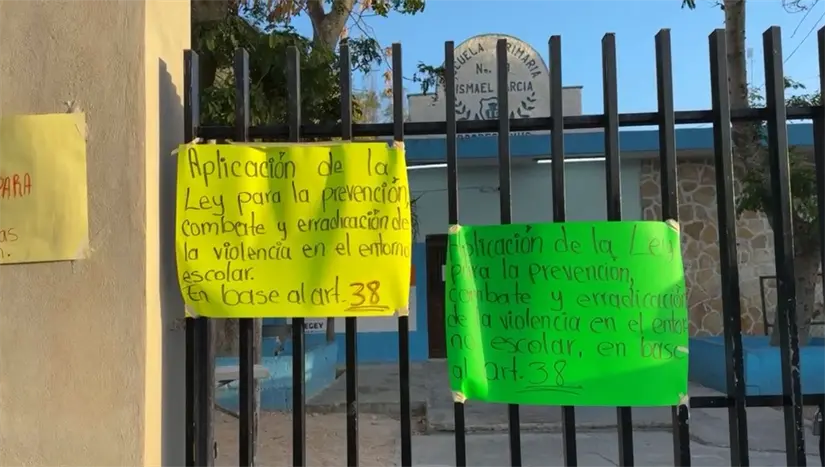 PARA
as
n.
ESCUELA PRIMARIA
No.
ISMAEL GARCIA
Aplicación de la
Ley para la prevención,
combate y erradicación de
la violencia en el entorno
escolar.
En base al art. 38
SEGEY
Aplicación de la Ley
para la prevención,
combate y erradicación
de la violencia en el entor
no escolar, en base
al art. 38